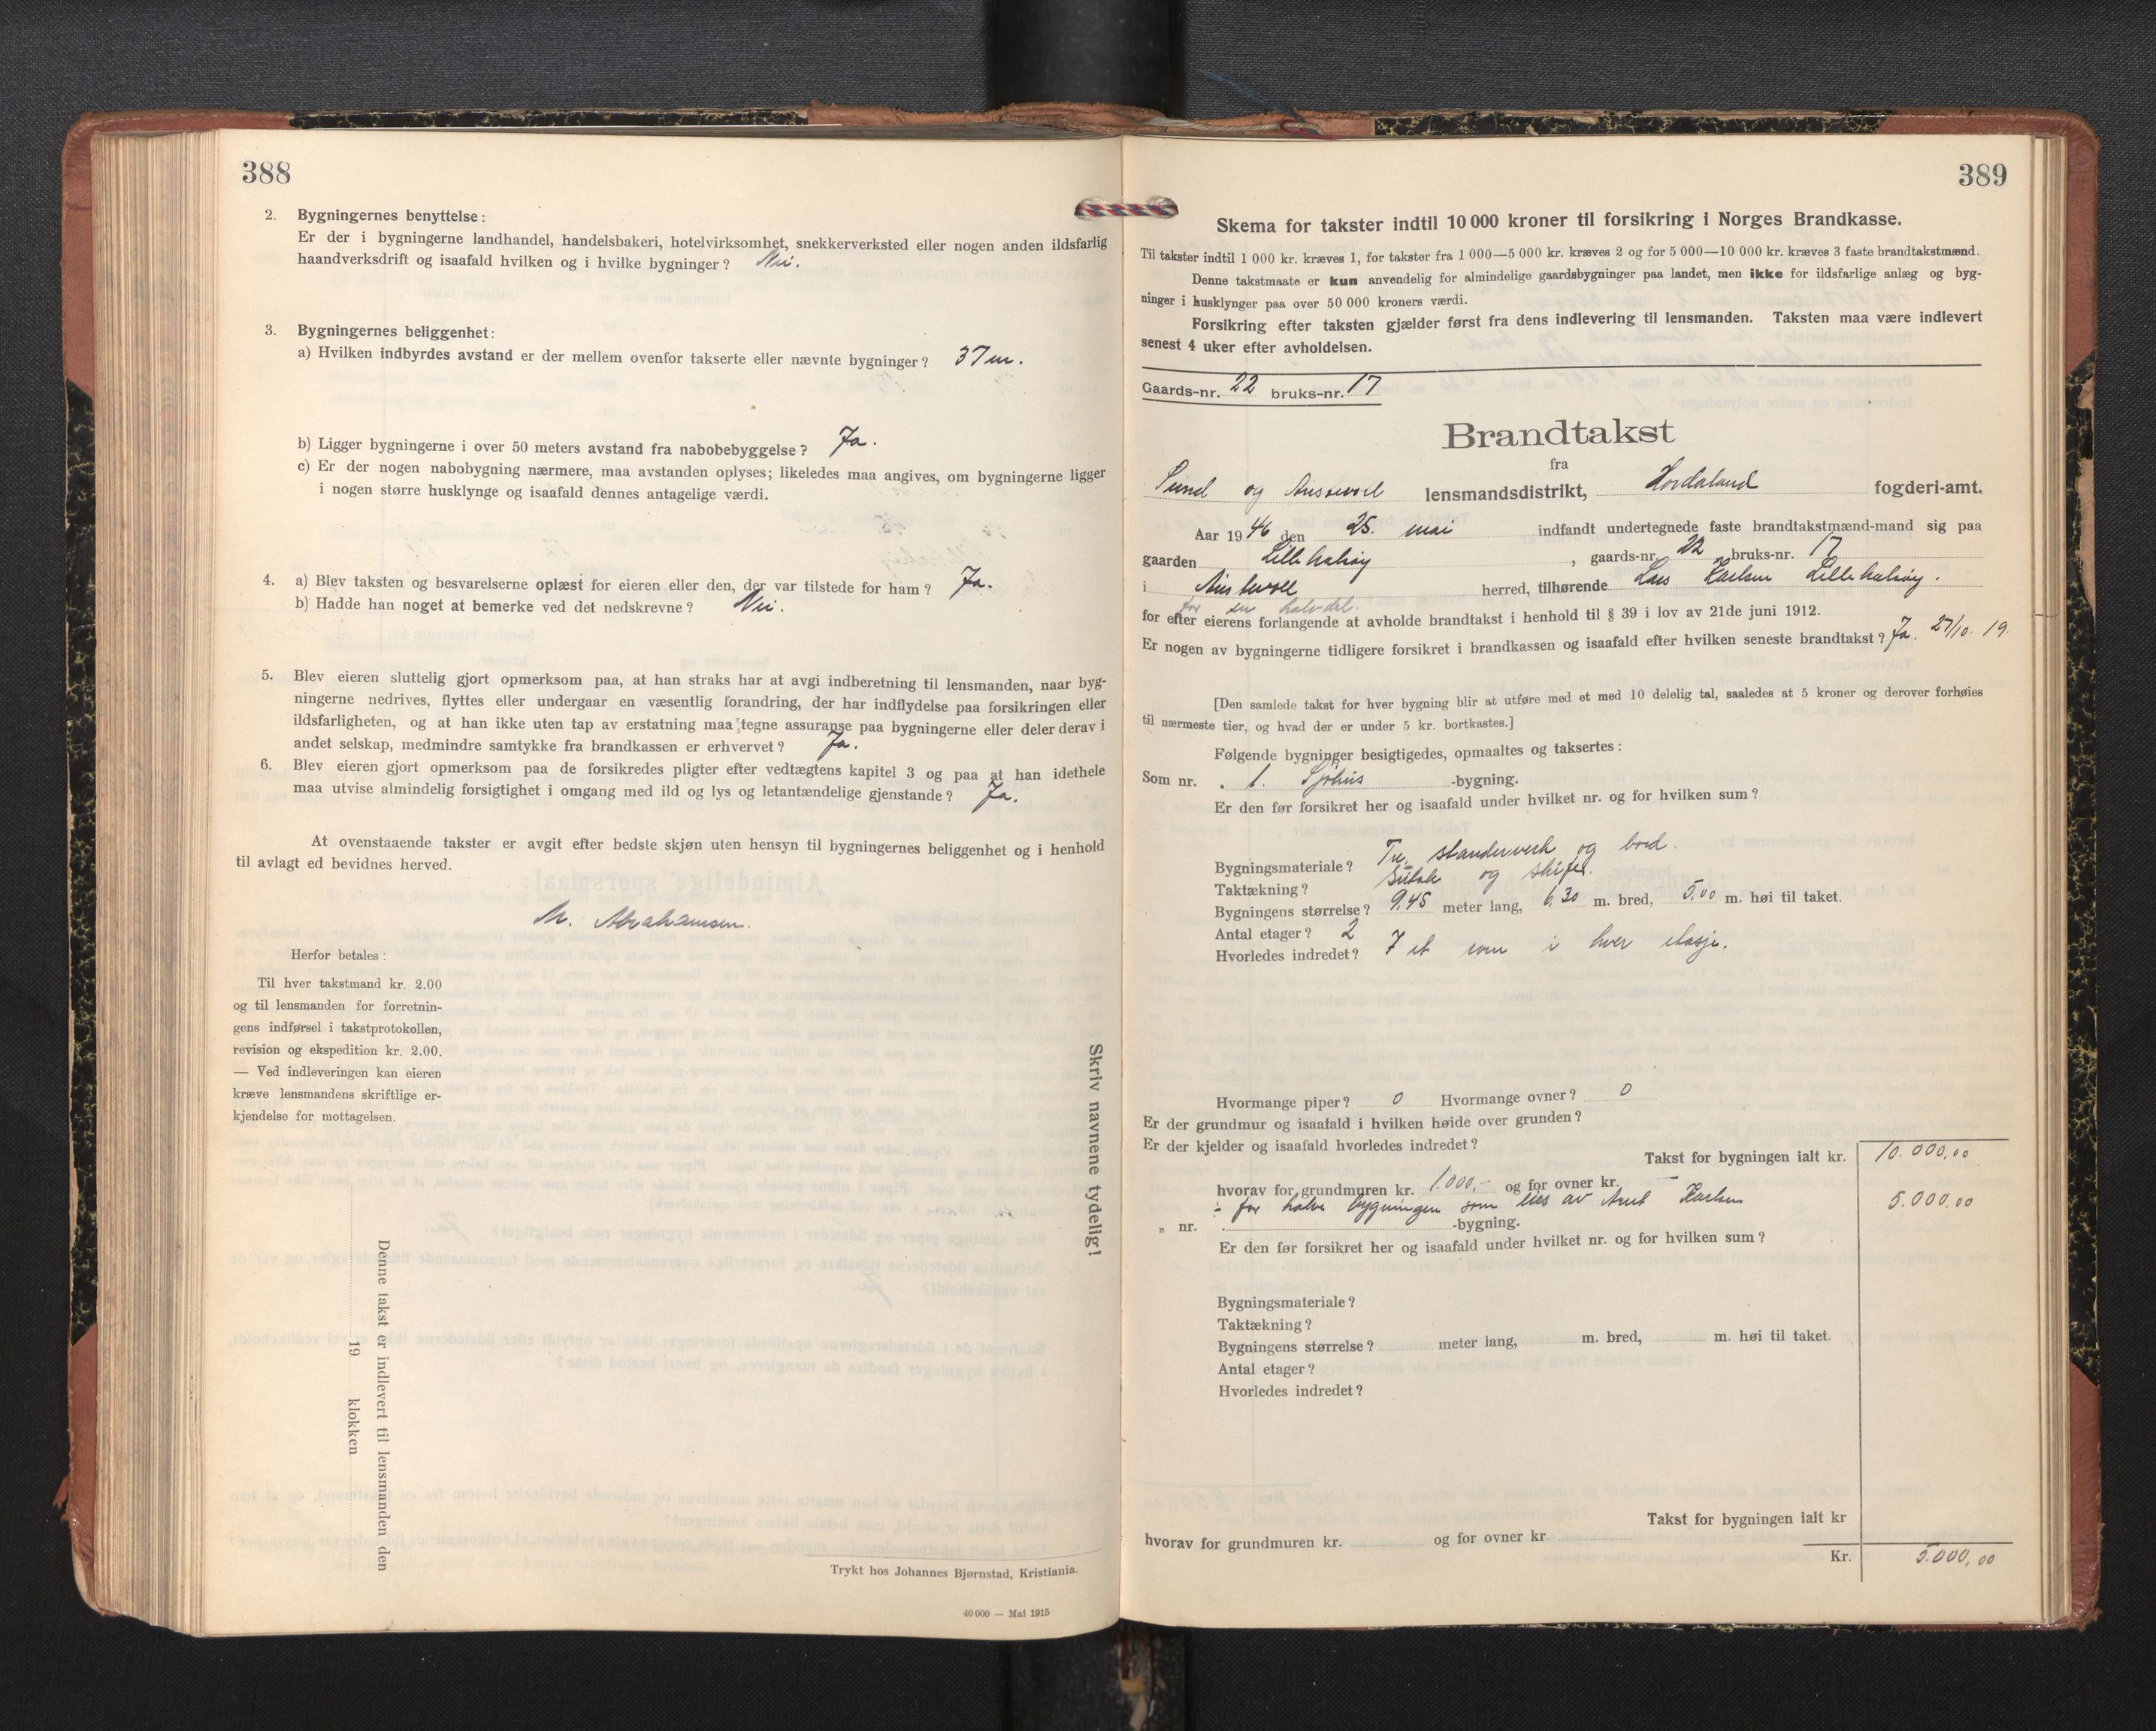 388
2. Bygningernes benyttelse:
Er der i bygningerne landhandel, handelsbakeri, hotelvirksomhet, snekkerverksted eller nogen anden ildsfarlig
haandverksdrift og isaafald hvilken og i hvilke bygninger? Nei.
3. Bygningernes beliggenhet:
a) Hvilken indbyrdes avstand er der mellem ovenfor takserte eller nævnte bygninger? 37 m.
b) Ligger bygningerne i over 50 meters avstand fra nabobebyggelse? Ja.
c) Er der nogen nabobygning nærmere, maa avstanden oplyses; likeledes maa angives, om bygningerne ligger
i nogen større husklynge og isaafald dennes antagelige værdi.
4. a) Blev taksten og besvarelserne oplæst for eieren eller den, der var tilstede for ham? Ja.
b) Hadde han noget at bemerke ved det nedskrevne? Nei.
5. Blev eieren sluttelig gjort opmerksom paa, at han straks har at avgi indberetning til lensmanden, naar byg-
ningerne nedrives, flyttes eller undergaar en væsentlig forandring, der har indflydelse paa forsikringen eller
ildsfarligheten, og at han ikke uten tap av erstatning maa tegne assuranse paa bygningerne eller deler derav i
andet selskap, medmindre samtykke fra brandkassen er erhvervet? Ja.
6. Blev eieren gjort opmerksom paa de forsikredes pligter efter vedtægtens kapitel 3 og paa at han idethele
maa utvise almindelig forsigtighet i omgang med ild og lys og letantændelige gjenstande? Ja.
At ovenstaaende takster er avgit efter bedste skjøn uten hensyn til bygningernes beliggenhet og i henhold
til avlagt ed bevidnes herved.
M. Abrahamsen.
Herfor betales:
Til hver takstmand kr. 2.00
og til lensmanden for forretnin-
gens indførsel i takstprotokollen,
revision og ekspedition kr. 2.00.
— Ved indleveringen kan eieren
kræve lensmandens skriftlige er-
kjendelse for mottagelsen.
Skriv navnene tydelig!
Denne takst er indlevert til lensmanden den
19 klokken
Trykt hos Johannes Bjørnstad, Kristiania.
40 000 — Mai 1915
389
Skema for takster indtil 10 000 kroner til forsikring i Norges Brandkasse.
Til takster indtil 1 000 kr. kræves 1, for takster fra 1 000—5 000 kr. kræves 2 og for 5 000—10 000 kr. kræves 3 faste brandtakstmænd.
Denne takstmaate er kun anvendelig for almindelige gaardsbygninger paa landet, men ikke for ildsfarlige anlæg og byg-
ninger i husklynger paa over 50 000 kroners værdi.
Forsikring efter taksten gjælder først fra dens indlevering til lensmanden. Taksten maa være indlevert
senest 4 uker efter avholdelsen.
Gaards-nr. 22 bruks-nr. 17
Brandtakst
fra
Sund og Austevoll lensmandsdistrikt, Hordaland fogderi-amt.
Aar 1946 den 25. mai indfandt undertegnede faste brandtakstmænd-mand sig paa
gaarden Lillekalsøy, gaards-nr. 22 bruks-nr. 17
i Austevoll herred, tilhørende Lars Karlsen Lillekalsøy.
for en halvdel.
for efter eierens forlangende at avholde brandtakst i henhold til § 39 i lov av 21de juni 1912.
Er nogen av bygningerne tidligere forsikret i brandkassen og isaafald efter hvilken seneste brandtakst? Ja. 27/10. 19.
[Den samlede takst for hver bygning blir at utføre med et med 10 delelig tal, saaledes at 5 kroner og derover forhøies
til nærmeste tier, og hvad der er under 5 kr. bortkastes.]
Følgende bygninger besigtigedes, opmaaltes og taksertes:
Som nr. 1. Sjøhus -bygning.
Er den før forsikret her og isaafald under hvilket nr. og for hvilken sum?
Bygningsmateriale? Tre, standerverk og bord.
Taktækning? Sutak og skifer.
Bygningens størrelse? 9,45 meter lang, 6,30 m. bred, 5,00 m. høi til taket.
Antal etager? 2
Hvorledes indredet? 7 et rom i hver etasje.
Hvormange piper? 0 Hvormange ovner? 0
Er der grundmur og isaafald i hvilken høide over grunden?
Er der kjelder og isaafald hvorledes indredet?
Takst for bygningen ialt kr. 10.000,00
hvorav for grundmuren kr. 1.000,- og for ovner kr. —
÷ for halve bygningen som eies av Karlsen 5.000,00
„ nr. -bygning.
Er den før forsikret her og isaafald under hvilket nr. og for hvilken sum?
Bygningsmateriale?
Taktækning?
Bygningens størrelse? meter lang, m. bred, m. høi til taket.
Antal etager?
Hvorledes indredet?
Takst for bygningen ialt kr
hvorav for grundmuren kr. og for ovner kr.
Kr. 5.000,00